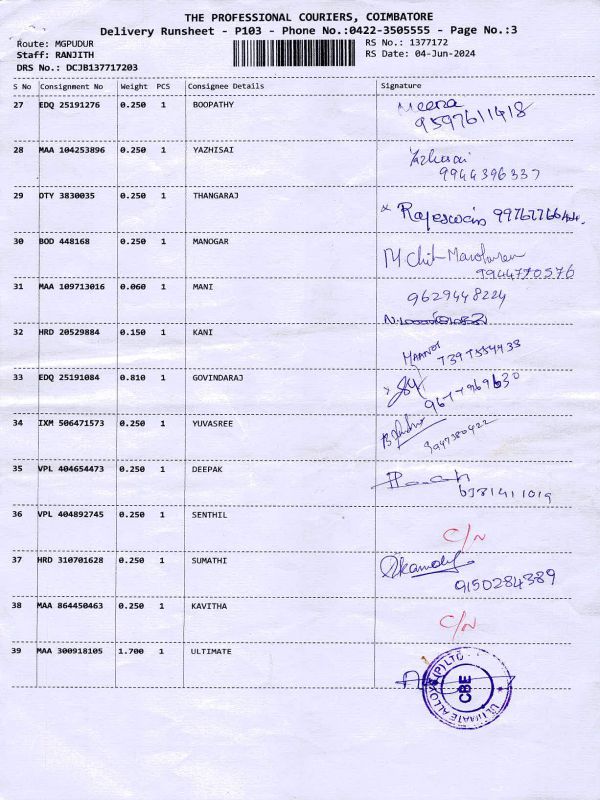 THE PROFESSIONAL COURIERS, COIMBATORE
Delivery Runsheet - P103 - Phone No.:0422-3505555 - Page No.:3
Route: MGPUDUR
RS No.: 1377172
Staff: RANJITH
RS Date: 04-Jun-2024
DRS No.: DCJB137717203
S No Consignment No Weight PCS Consignee Details Signature
27 EDQ 25191276 0.250 1 BOOPATHY Meena
9597611418
28 MAA 104253896 0.250 1 YAZHISAI Yazhisai
9944396337
29 DTY 3830035 0.250 1 THANGARAJ
30 BOD 448168 0.250 1 MANOGAR
9944770576
31 MAA 109713016 0.060 1 MANI 9629448224
32 HRD 20529884 0.150 1 KANI
7397554433
33 EDQ 25191084 0.810 1 GOVINDARAJ
9677969630
34 IXM 506471573 0.250 1 YUVASREE
9047380422
35 VPL 404654473 0.250 1 DEEPAK
6381411019
36 VPL 404892745 0.250 1 SENTHIL C/N
37 HRD 310701628 0.250 1 SUMATHI
9150284389
38 MAA 864450463 0.250 1 KAVITHA C/N
39 MAA 300918105 1.700 1 ULTIMATE
ULTIMATE ALLOYS (P) LTD
CBE